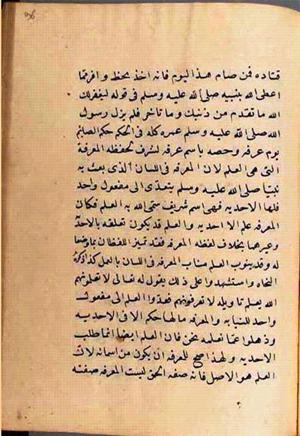 قتاده فمن صام هذا اليوم فانه اخذ بحظ وافر مما
اعطى الله نبيه صلى الله عليه وسلم في قوله ليغفر لك
الله ما تقدم من ذنبك وما تاخر فلم يزل رسول
الله صلى الله عليه وسلم عمره كله في الحكم حكم الصايم
يوم عرفه وخصه باسم عرفه لشرف لفظه المعرفة
التي هي العلم لان المعرفه في اللسان الذي بعث به
نبينا صلى الله عليه وسلم يتعدى الى مفعول واحد
فلها الاحديه فهي اسم شريف سمى الله به العلم فكان
المعرفه علم الاحديه والعلم قد يكون تعلقه بالاحد
وغيرها بخلاف لفظه المعرفه فقد تميز اللفظان بما وضعا
له وقد ينوب العلم مناب المعرفه في اللسان بالعمل كذا ذكره
النحاه واستشهدوا على ذلك بقوله تعالى لا تعلمونهم
الله يعلمهم تاويله لا تعرفونهم فعدوا العلم الى مفعول
واحد للنيابه والمعرفه ما لها حكم الا في الاحديه
وذهلوا عما نعلمه نحن فان العلم ايضا انما طلب
الاحديه ولهذا صح للمعرفه ان يكون من اسمائه لان
العلم هو الاصل فانه صفه الحق ليست المعرفه صفته